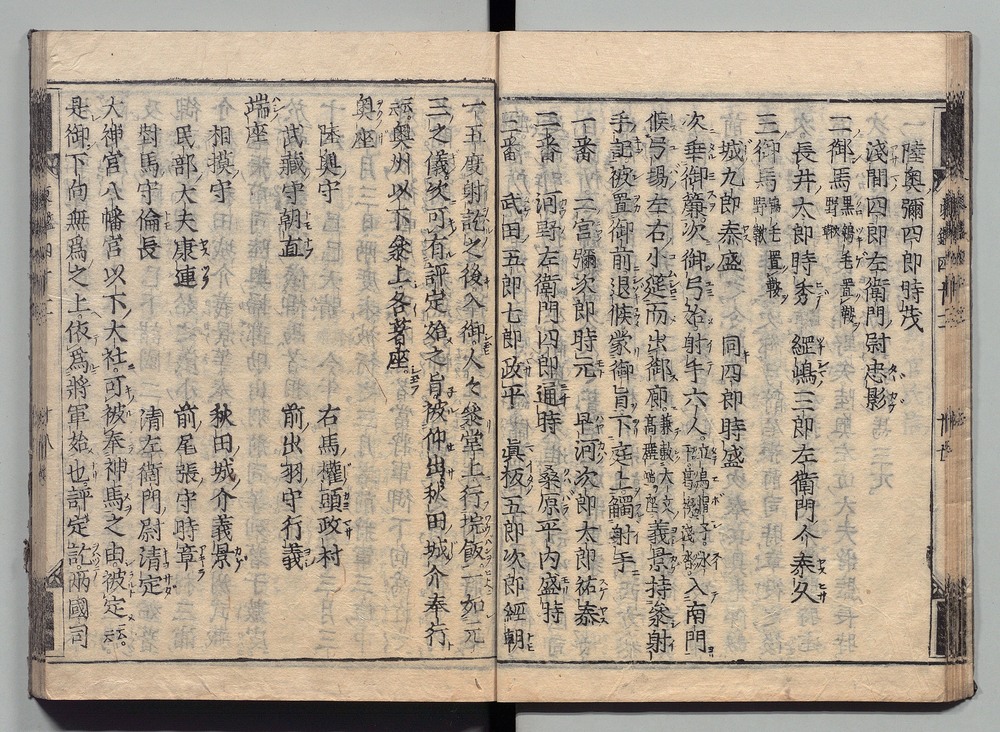 一陸奧彌四郎時茂
淺間四郎左衛門尉忠影
二御馬黑鵇毛置鞍野鞦
長井太郎時秀　經嶋三郎左衛門介泰久
三御馬鴾毛置鞍野鞦
城九郎泰盛　同四郎時盛
次垂御簾次御弓始射手六人入南門
候弓場左右小筵而出御廂義景持參射
手記被置御前退候蒙御旨下庭上觸射手
一番　二宮彌次郎時元　早河次郎太郎祐泰
二番　河野左衛門四郎通時　桑原平内盛時
三番　武田五郎七郎政平　眞板五郎次郎經朝
一五度射訖之後入御人々參堂上行垸飯一如元
三之儀次可有評定始之旨被仰出秋田城介奉行
云云奧州以下參上各著座
奧座
陸奧守　右馬權頭政村
武藏守朝直　前出羽守行義
端座
相摸守　秋田城介義景
民部大夫康連　前尾張守時章
對馬守倫長　清左衛門尉清定
大神宮八幡宮以下大社可被奉神馬之由被定云云
是御下向無爲之上依爲將軍始也評定訖兩國司